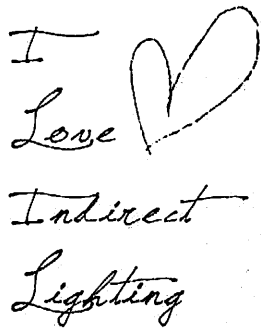 I
Love
Indirect
Lighting